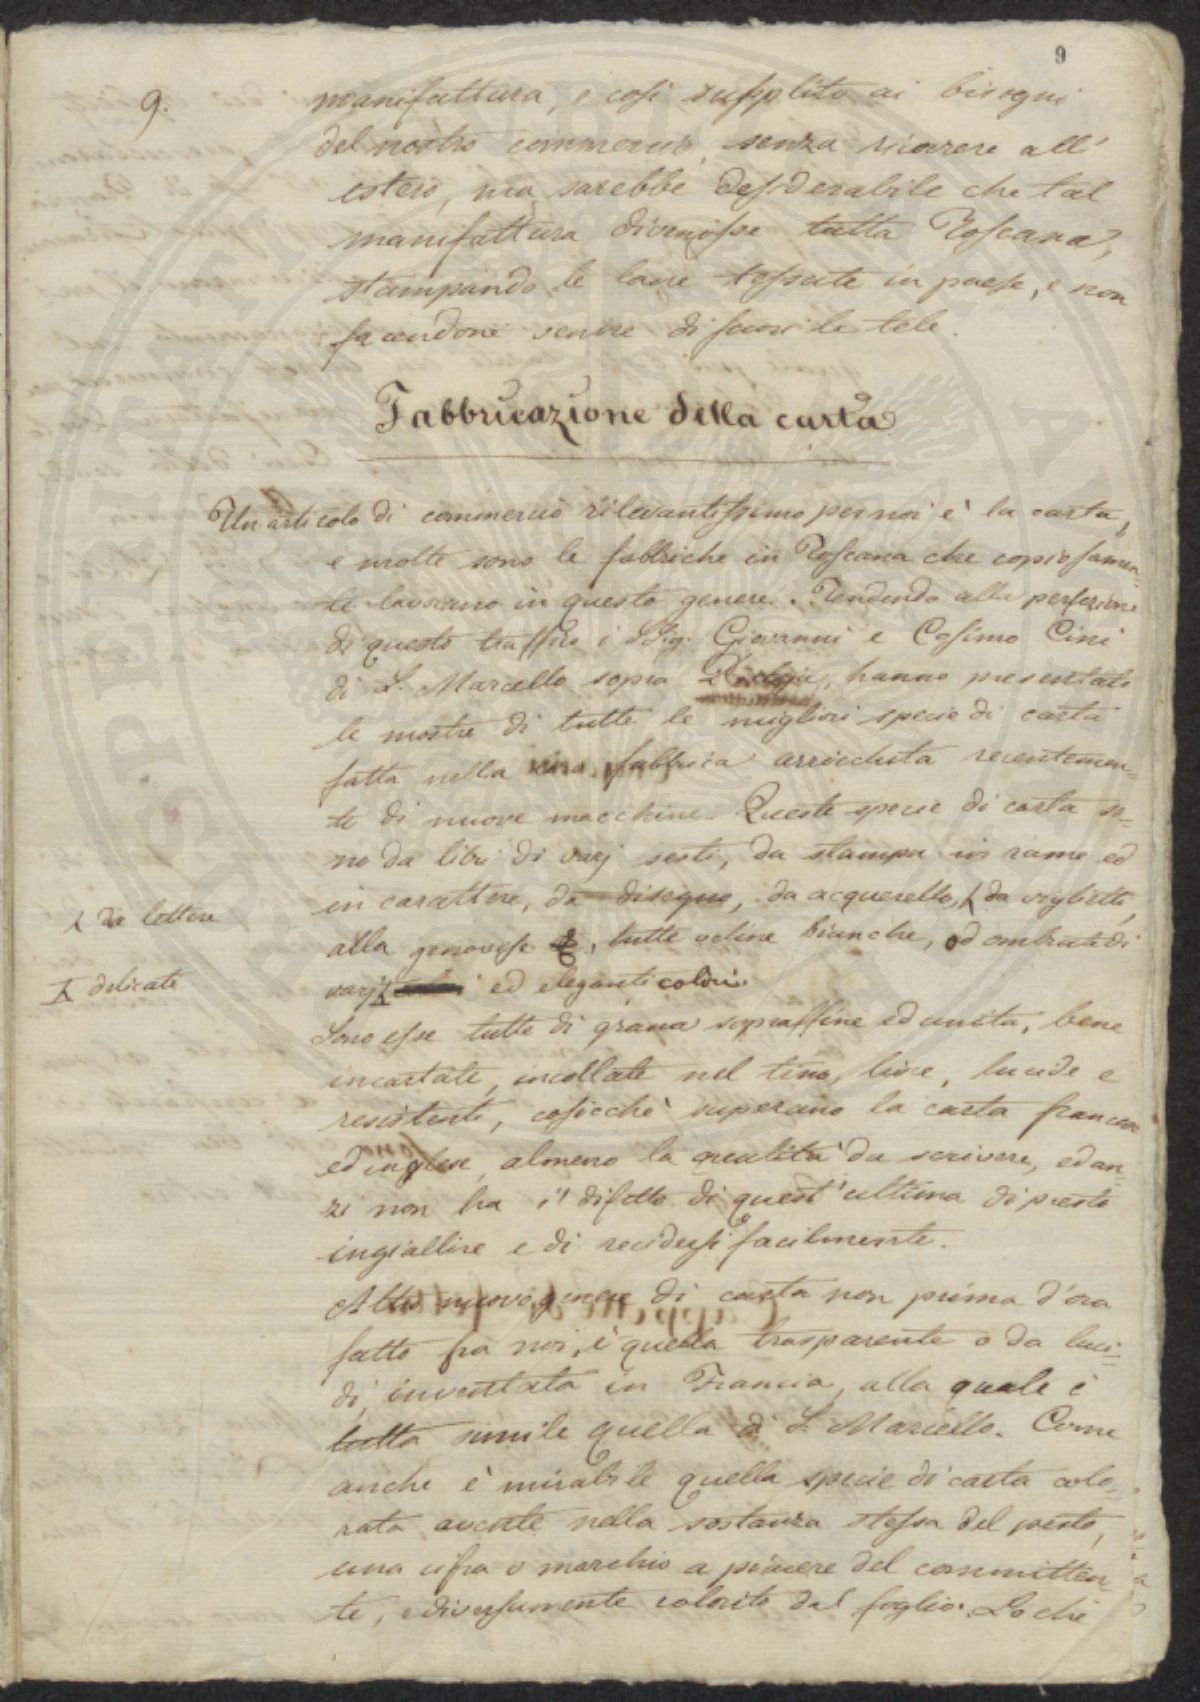 9
9.
manifattura, e così supplito ai bisogni
del nostro commercio, senza ricorrere all'
estero, ma sarebbe desiderabile che tal
manifattura divenisse tutta Toscana,
stampando le lane tessute in paese, e non
facendone venire di fuori le tele.
Fabbricazione della carta
Un articolo di commercio rilevantissimo per noi è la carta,
e molte sono le fabbriche in Toscana che copiosamen=
te lavorano in questo genere. Tendendo alla perfezione
di questo traffico i SSig. Giovanni e Cosimo Cini
di S. Marcello sopra Pistoja, hanno presentato
le mostre di tutte le migliori specie di carta
fatta nella loro fabbrica arricchita recentemen=
te di nuove macchine. Queste specie di carta so=
no da libri di varj sesti, da stampa in rame ed
in carattere, da disegno, da acquerello, da viglietti,
da lettere
alla genovese &, tutte veline bianche, od ombrate di
varj ed eleganti colori.
delicate
Sono esse tutte di grana sopraffine ed unita, bene
incartate, incollate nel tino, lisce, lucide e
resistenti, cosicchè superano la carta francese
ed inglese, almeno la qualità da scrivere, ed an=
zi non ha il difetto di quest'ultima di presto
ingiallire e di recidersi facilmente.
Altro nuovo genere di carta non prima d'ora
fatto fra noi, è quella trasparente o da luci=
di, inventata in Francia, alla quale è
tutta simile quella di S. Marcello. Come
anche è mirabile quella specie di carta colo=
rata avente nella sostanza stessa del pesto,
una cifra o marchio a piacere del committen=
te, e diversamente colorito dal foglio. Lo che